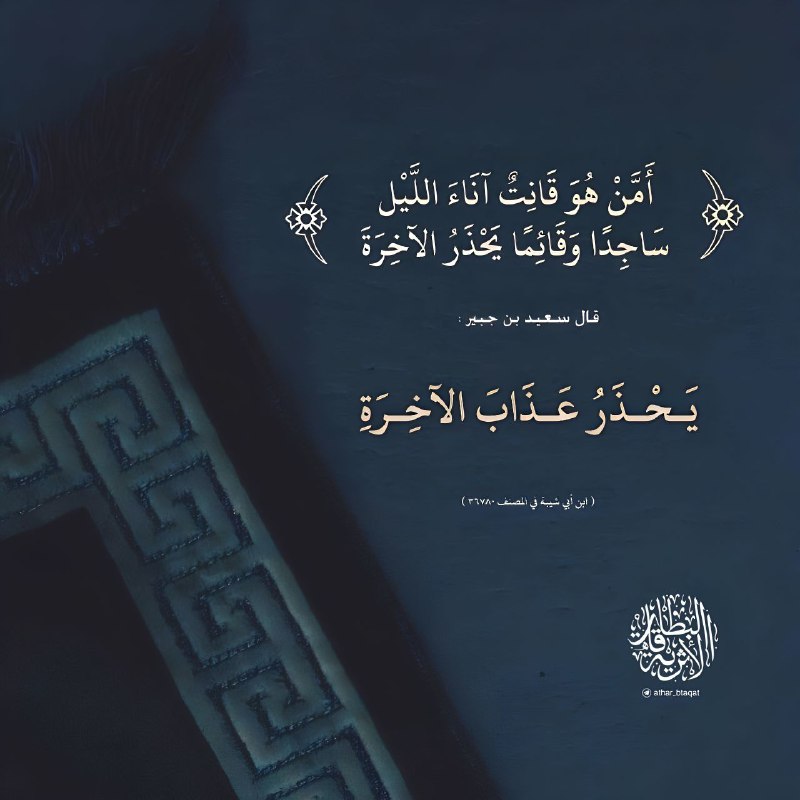 أَمَّنْ هُوَ قَانِتٌ آنَاءَ اللَّيْل
سَاجِدًا وَقَائِمًا يَحْذَرُ الآخِرَةَ
قال سعيد بن جبير :
يَـحْـذَرُ عَـذَابَ الآخِـرَةِ
( ابن أبي شيبة في المصنف ٣٦٧٨٠ )
البطاقات
الأثرية
athar_btaqat